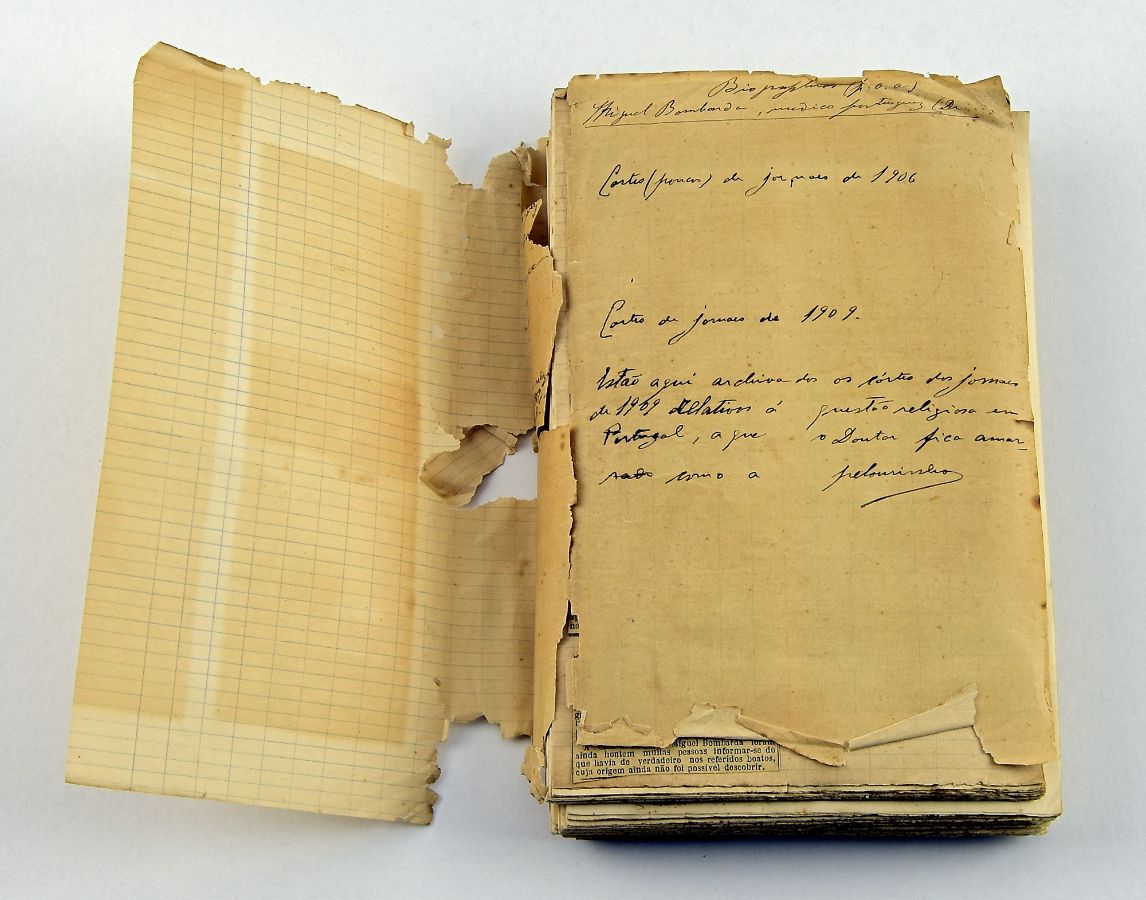 Biographias (p.o.o.)
Miguel Bombarda, medico portuguez (Dr.
Cortes (poucos) de jornaes de 1906
Cortes de jornaes de 1909.
Estão aqui archivados os córtes dos jornaes
de 1909 rellativos á questão religiosa em
Portugal, a que o Doutor fica amar-
rado como a pelourinho
Miguel Bombarda foram
ainda hontem muitas pessoas informar-se do
que havia de verdadeiro nos referidos boatos,
cuja origem ainda não foi possivel descobrir.